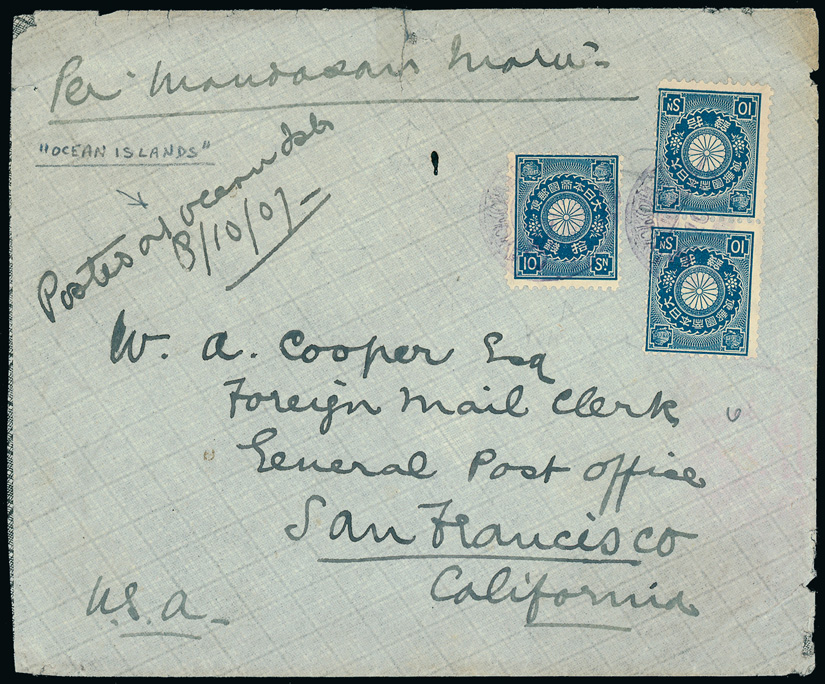 Per Mandasan Maru
"OCEAN ISLANDS"
Posted at Ocean Isls
3/10/07
大日本帝國郵便
拾錢
10 SN
拾錢
大日本帝國郵便
10 SN
拾錢
大日本帝國郵便
10 SN
W. A. Cooper Esq
Foreign Mail Clerk
General Post Office
San Francisco
California
U.S.A.